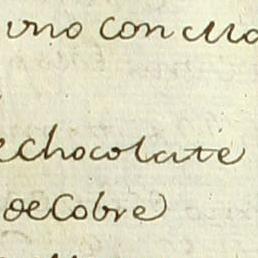 uno con
de chocolate
de Cobre